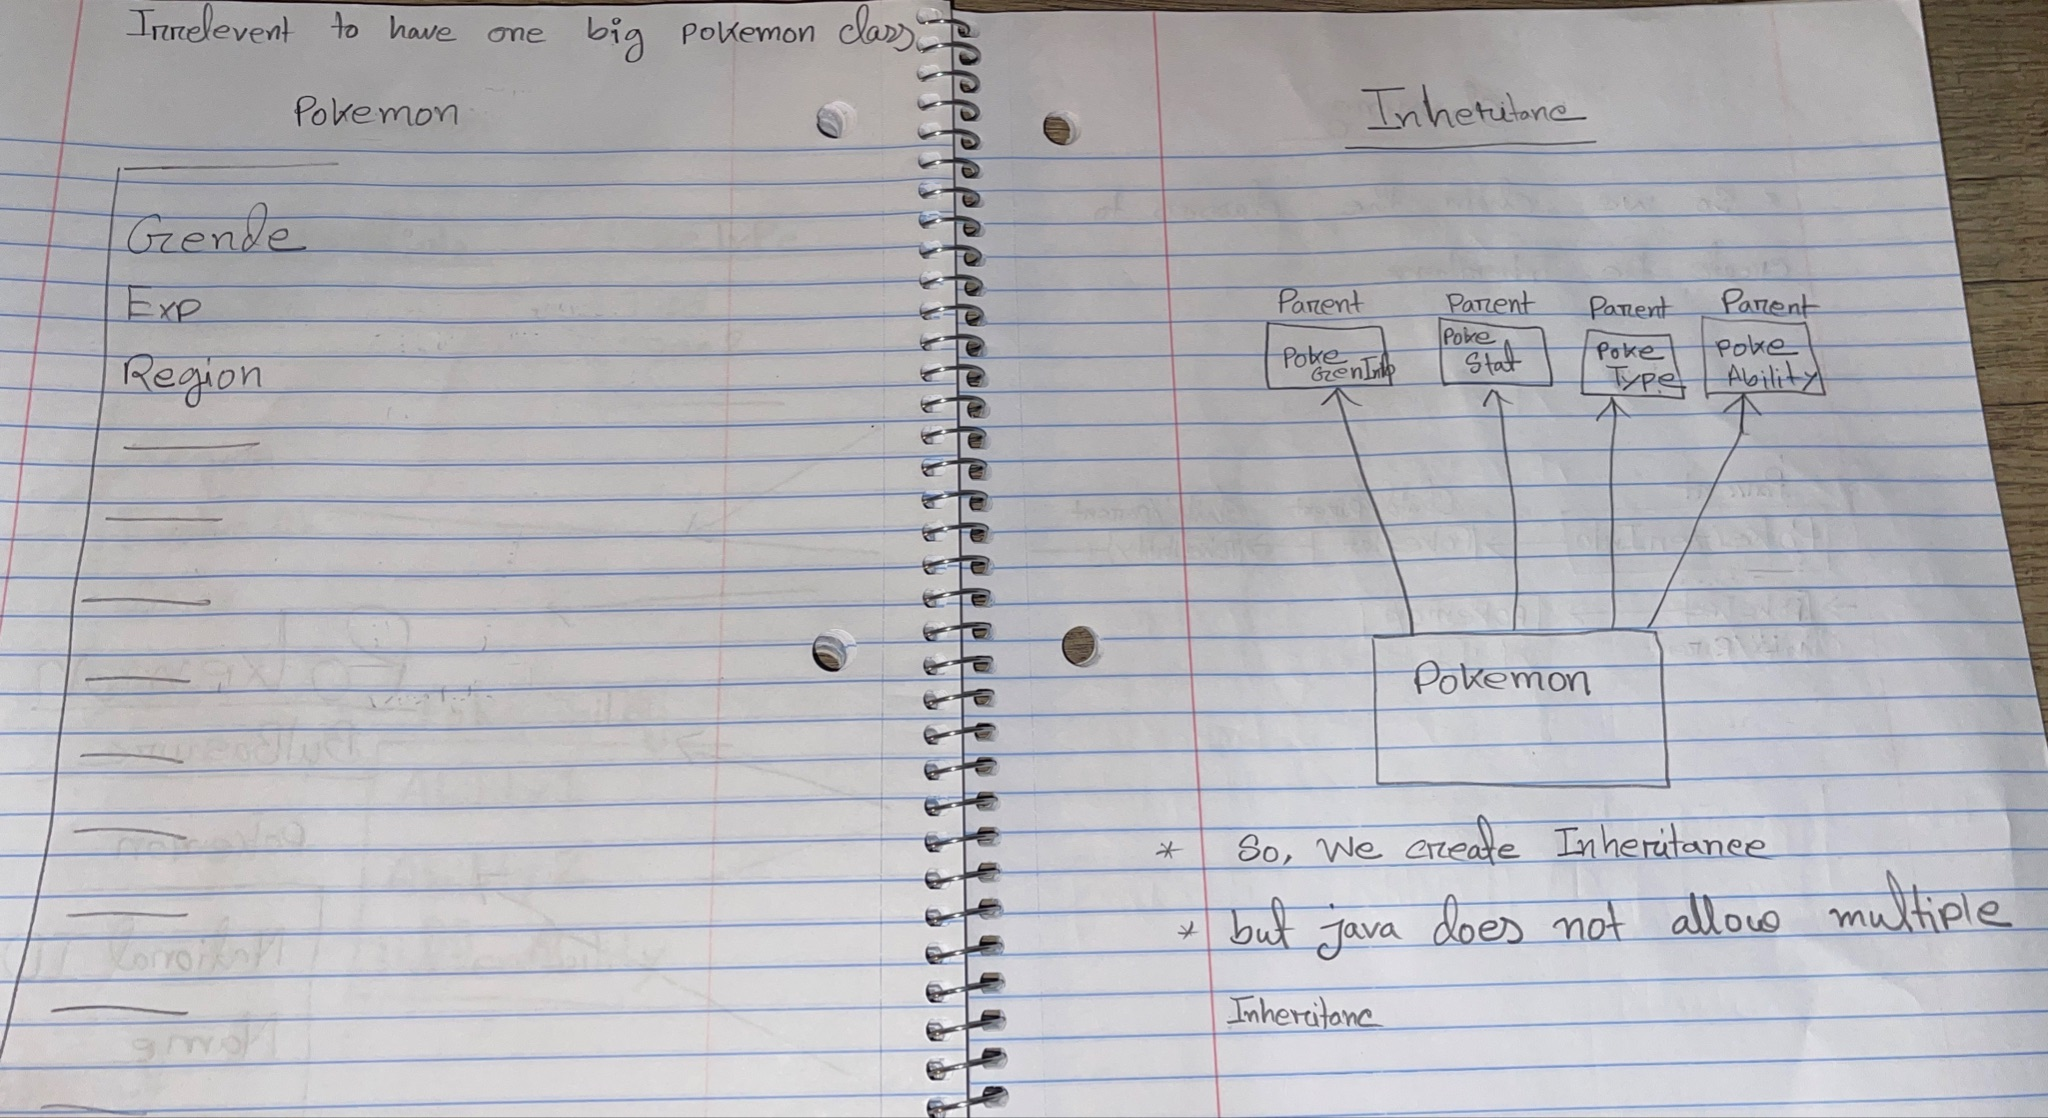 Irrelevent to have one big pokemon class
Pokemon
Gende
Exp
Region
Inheritane
Parent Parent Parent Parent
Poke GenInfo
Poke Stat
Poke Type
Poke Ability
Pokemon
* So, We create Inheritance
* but java does not allow multiple
Inheritanc